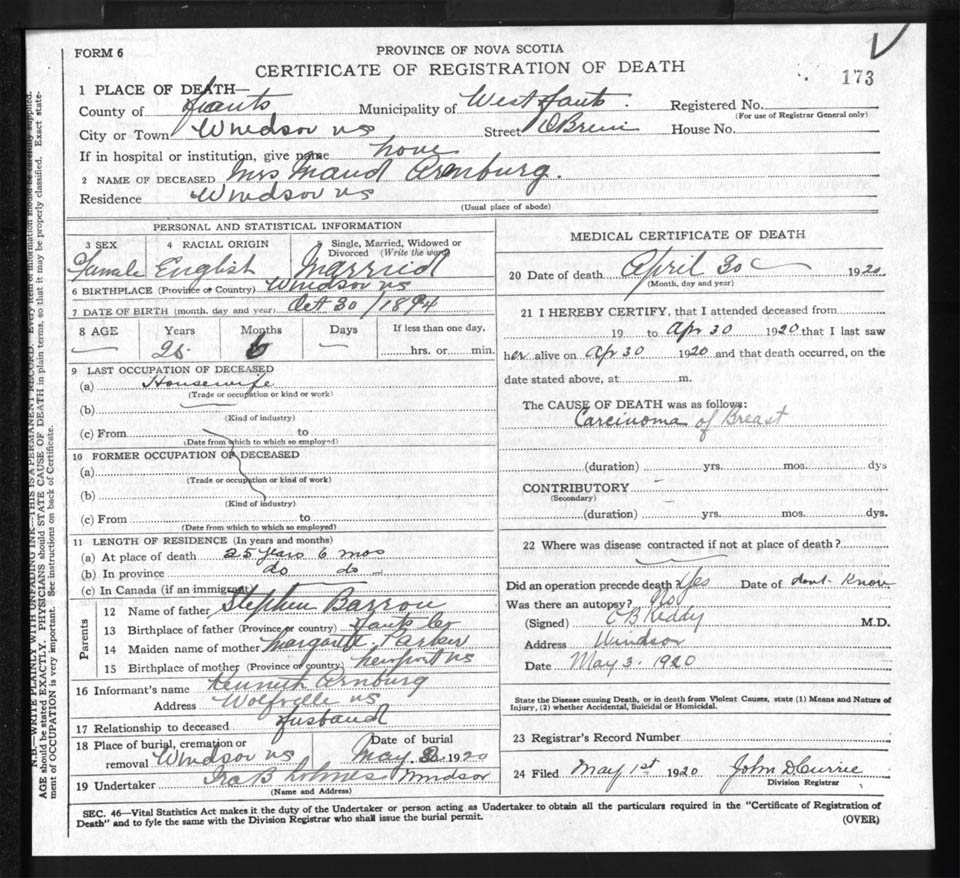 FORM 6
PROVINCE OF NOVA SCOTIA
CERTIFICATE OF REGISTRATION OF DEATH
173
1 PLACE OF DEATH—
County of Hants Municipality of West Hants Registered No.
(For use of Registrar General only)
City or Town Windsor NS Street OBrien House No.
If in hospital or institution, give name home
2 NAME OF DECEASED Mrs Maud Arnburg.
Residence Windsor NS
(Usual place of abode)
PERSONAL AND STATISTICAL INFORMATION
3 SEX 4 RACIAL ORIGIN Single, Married, Widowed or Divorced (Write the word)
Female English Married
6 BIRTHPLACE (Province or Country) Windsor NS
7 DATE OF BIRTH (month, day and year) Oct 30 / 1894
8 AGE Years Months Days If less than one day,
25 6 — hrs. or min.
9 LAST OCCUPATION OF DECEASED
(a) Housewife
(Trade or occupation or kind or work)
(b)
(Kind of industry)
(c) From to
(Date from which to which so employed)
10 FORMER OCCUPATION OF DECEASED
(a)
(Trade or occupation or kind of work)
(b)
(Kind of industry)
(c) From to
(Date from which to which so employed)
11 LENGTH OF RESIDENCE (In years and months)
(a) At place of death 25 years 6 mos
(b) In province do do
(c) In Canada (if an immigrant)
Parents
12 Name of father Stephen Barron
13 Birthplace of father (Province or country) Hants Co
14 Maiden name of mother Margaret Parker
15 Birthplace of mother (Province or country) Newport NS
16 Informant's name Kenneth Arnburg
Address Wolfville NS
17 Relationship to deceased Husband
18 Place of burial, cremation or removal Windsor NS Date of burial May 2 1920
19 Undertaker Ira B Lohnes Windsor
(Name and Address)
MEDICAL CERTIFICATE OF DEATH
20 Date of death April 30 1920
(Month, day and year)
21 I HEREBY CERTIFY, that I attended deceased from
19 to Apr 30 1920 that I last saw
her alive on Apr 30 1920 and that death occurred, on the
date stated above, at m.
The CAUSE OF DEATH was as follows:
Carcinoma of Breast
(duration) yrs. mos. dys
CONTRIBUTORY
(Secondary)
(duration) yrs. mos. dys.
22 Where was disease contracted if not at place of death?
Did an operation precede death Yes Date of dont Know
Was there an autopsy? No
(Signed) C B Reddy M.D.
Address Windsor
Date May 3. 1920
State the Disease causing Death, or in death from Violent Causes, state (1) Means and Nature of
Injury, (2) whether Accidental, Suicidal or Homicidal.
23 Registrar's Record Number
24 Filed May 1st 1920 John D Currie
Division Registrar
SEC. 46—Vital Statistics Act makes it the duty of the Undertaker or person acting as Undertaker to obtain all the particulars required in the "Certificate of Registration of
Death" and to fyle the same with the Division Registrar who shall issue the burial permit.
(OVER)
N.B.—WRITE PLAINLY WITH UNFADING INK—THIS IS A PERMANENT RECORD. Every item of information should be carefully supplied.
AGE should be stated EXACTLY. PHYSICIANS should STATE CAUSE OF DEATH in plain terms, so that it may be properly classified. Exact state-
ment of OCCUPATION is very important. See instructions on back of Certificate.